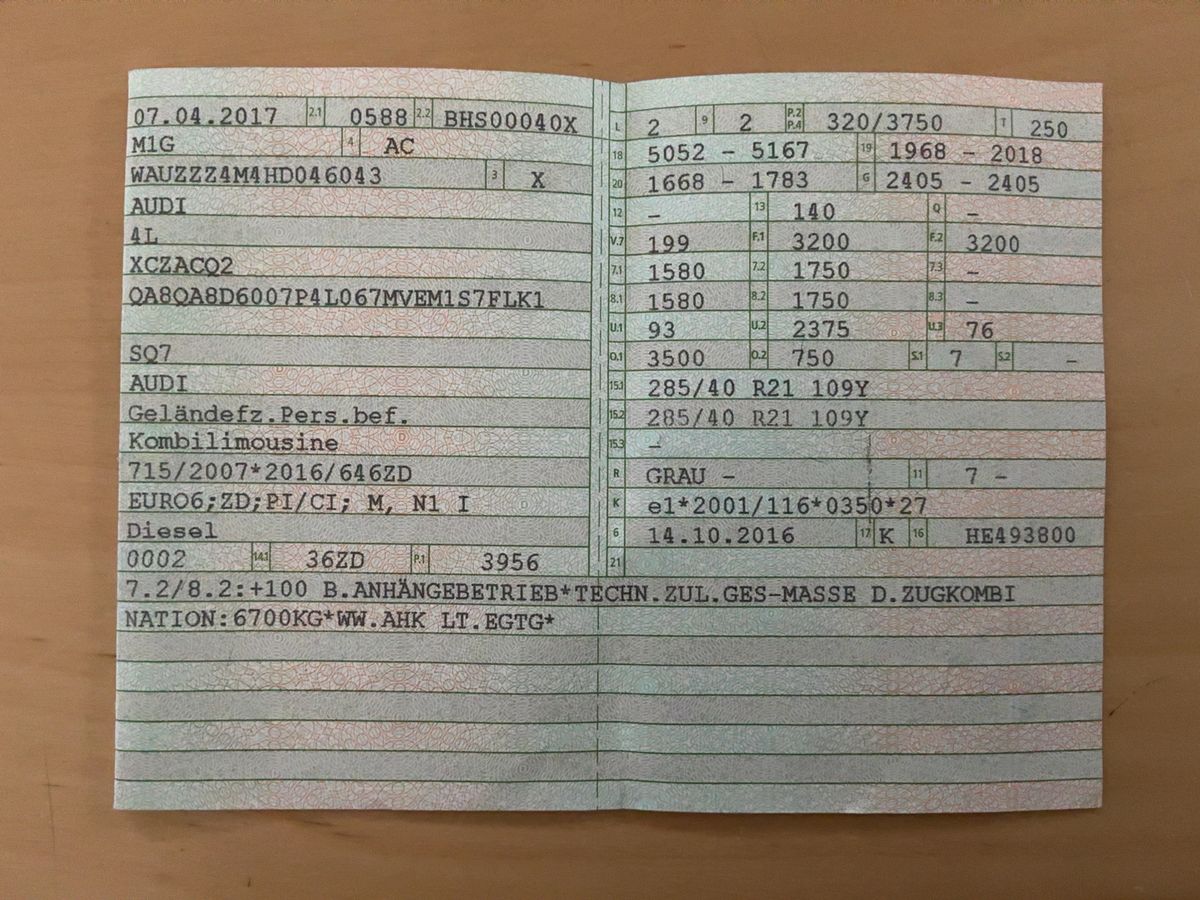 07.04.2017 2.1 0588 2.2 BHS00040X
M1G 4 AC
WAUZZZ4M4HD046043 3 X
AUDI
4L
XCZACQ2
QA8QA8D6007P4L067MVEM1S7FLK1
SQ7
AUDI
Geländefz.Pers.bef.
Kombilimousine
715/2007*2016/646ZD
EURO6;ZD;PI/CI; M, N1 I
Diesel
0002 14.1 36ZD P.1 3956
L 2 9 2 P.2 P.4 320/3750 T 250
18 5052 - 5167 19 1968 - 2018
20 1668 - 1783 G 2405 - 2405
12 - 13 140 Q -
V.7 199 F.1 3200 F.2 3200
7.1 1580 7.2 1750 7.3 -
8.1 1580 8.2 1750 8.3 -
U.1 93 U.2 2375 U.3 76
O.1 3500 O.2 750 S.1 7 S.2 -
15.1 285/40 R21 109Y
15.2 285/40 R21 109Y
15.3 -
R GRAU - 11 7 -
K e1*2001/116*0350*27
6 14.10.2016 17 K 16 HE493800
21
7.2/8.2:+100 B.ANHÄNGEBETRIEB*TECHN.ZUL.GES-MASSE D.ZUGKOMBI
NATION:6700KG*WW.AHK LT.EGTG*